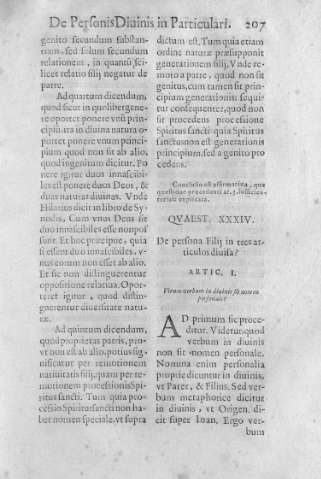 De PersonisDiuinis in Particulari. 207
genito secundum substan
tiam, sed solum secundum
relationem, in quantū sci-
licet relatio filij negatur de
patre.
Ad quartum dicendum,
quod sicut in quolibet gene-
re oportet ponere vnū prin-
cipiū, ita in diuina natura o-
portet ponere vnum princi-
pium quod non sit ab alio,
quod ingenitum dicitur. Po
nere igitur duos innascibi-
les est ponere duos Deos, &
duas naturas diuinas. Vnde
Hilarius dicit in libro de Sy-
nodis. Cum vnus Deus sit
duo innascibiles esse non pos
sunt. Et hoc præcipue, quia
si essent duo innascibiles, v-
nus eorum non esset ab alio.
Et sic non distinguerentur
oppositione relatiua. Opor-
teret igitur, quod distin-
guerentur diuersitate natu-
ræ.
Ad quintum dicendum,
quod proprietas patris, pro-
vt non est ab alio, potius sig-
nificatur per remotionem
natiuitatis filij, quam per re-
motionem processionis Spi-
ritus sancti. Tum quia pro-
cessio Spiritus sancti non ha-
ber nomen speciale, vt supra
dictum est. Tum quia etiam
ordine naturæ præsupponit
generationem filij. Vnde re-
moto a patre, quod non sit
genitus, cum tamen sit prin-
cipium generationis: sequi
tur consequenter, quod non
sit procedens processione
Spiritus sancti: quia Spiritus
sanctus non est generationis
principium, sed a genito pro
cedens.
QVAEST. XXXIV.
De persona Filij in tres ar-
ticulos diuisa?
ARTIC. I.
Vtrum verbum in diuinis sit nomen
personale?
AD primum sic proce-
ditur. Videtur, quod
verbum in diuinis
non sit nomen personale.
Nomina enim personalia
proprie dicuntur in diuinis,
vt Pater, & Filius. Sed ver-
bum metaphorice dicitur
in diuinis, vt Origen. di-
cit super Ioan. Ergo ver-
bum